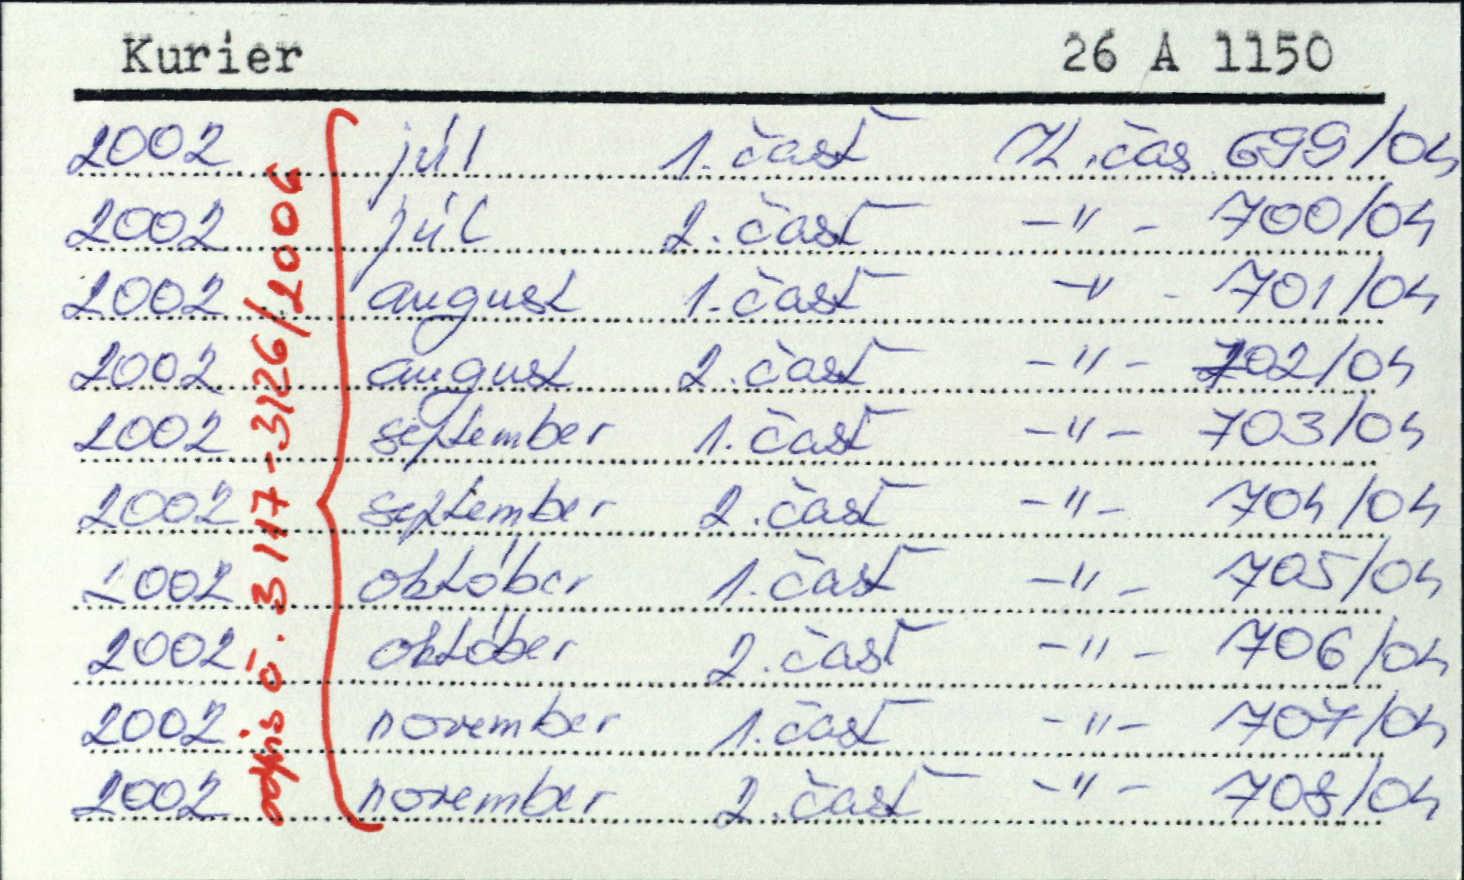 Kurier 26 A 1150
2002 júl 1. časť Zl. čas 699/04
2002 júl 2. časť -"- 700/04
2002 august 1. časť -"- 701/04
2002 august 2. časť -"- 702/04
2002 september 1. časť -"- 703/04
2002 september 2. časť -"- 704/04
2002 október 1. časť -"- 705/04
2002 október 2. časť -"- 706/04
2002 november 1. časť -"- 707/04
2002 november 2. časť -"- 708/04
odpis č. 3117-3126/2006